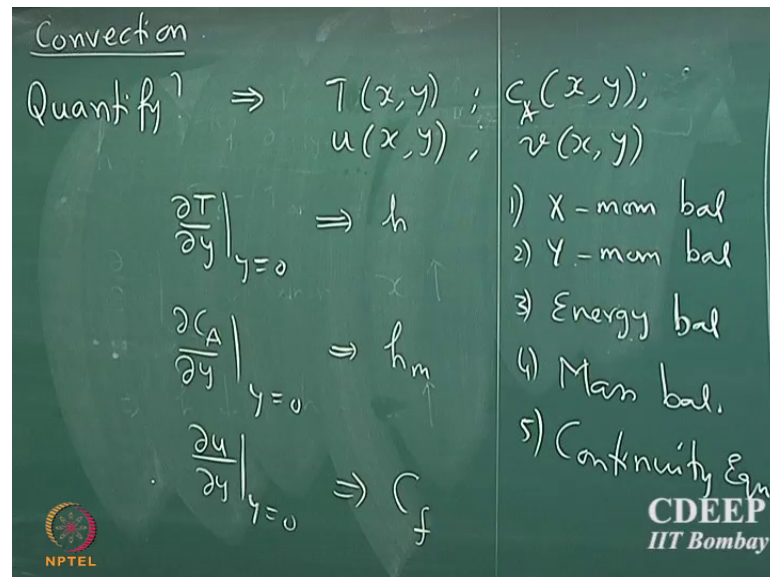 Convection.
Quantify ⇒ T(x,y) ; C_A(x,y);
u(x,y) , v(x,y)
∂T/∂y |y=0 ⇒ h
∂C_A/∂y |y=0 ⇒ h_m
∂u/∂y |y=0 ⇒ C_f
1) X-mom bal
2) Y-mom bal
3) Energy bal
4) Mass bal.
5) Continuity Eqn
NPTEL
CDEEP
IIT Bombay